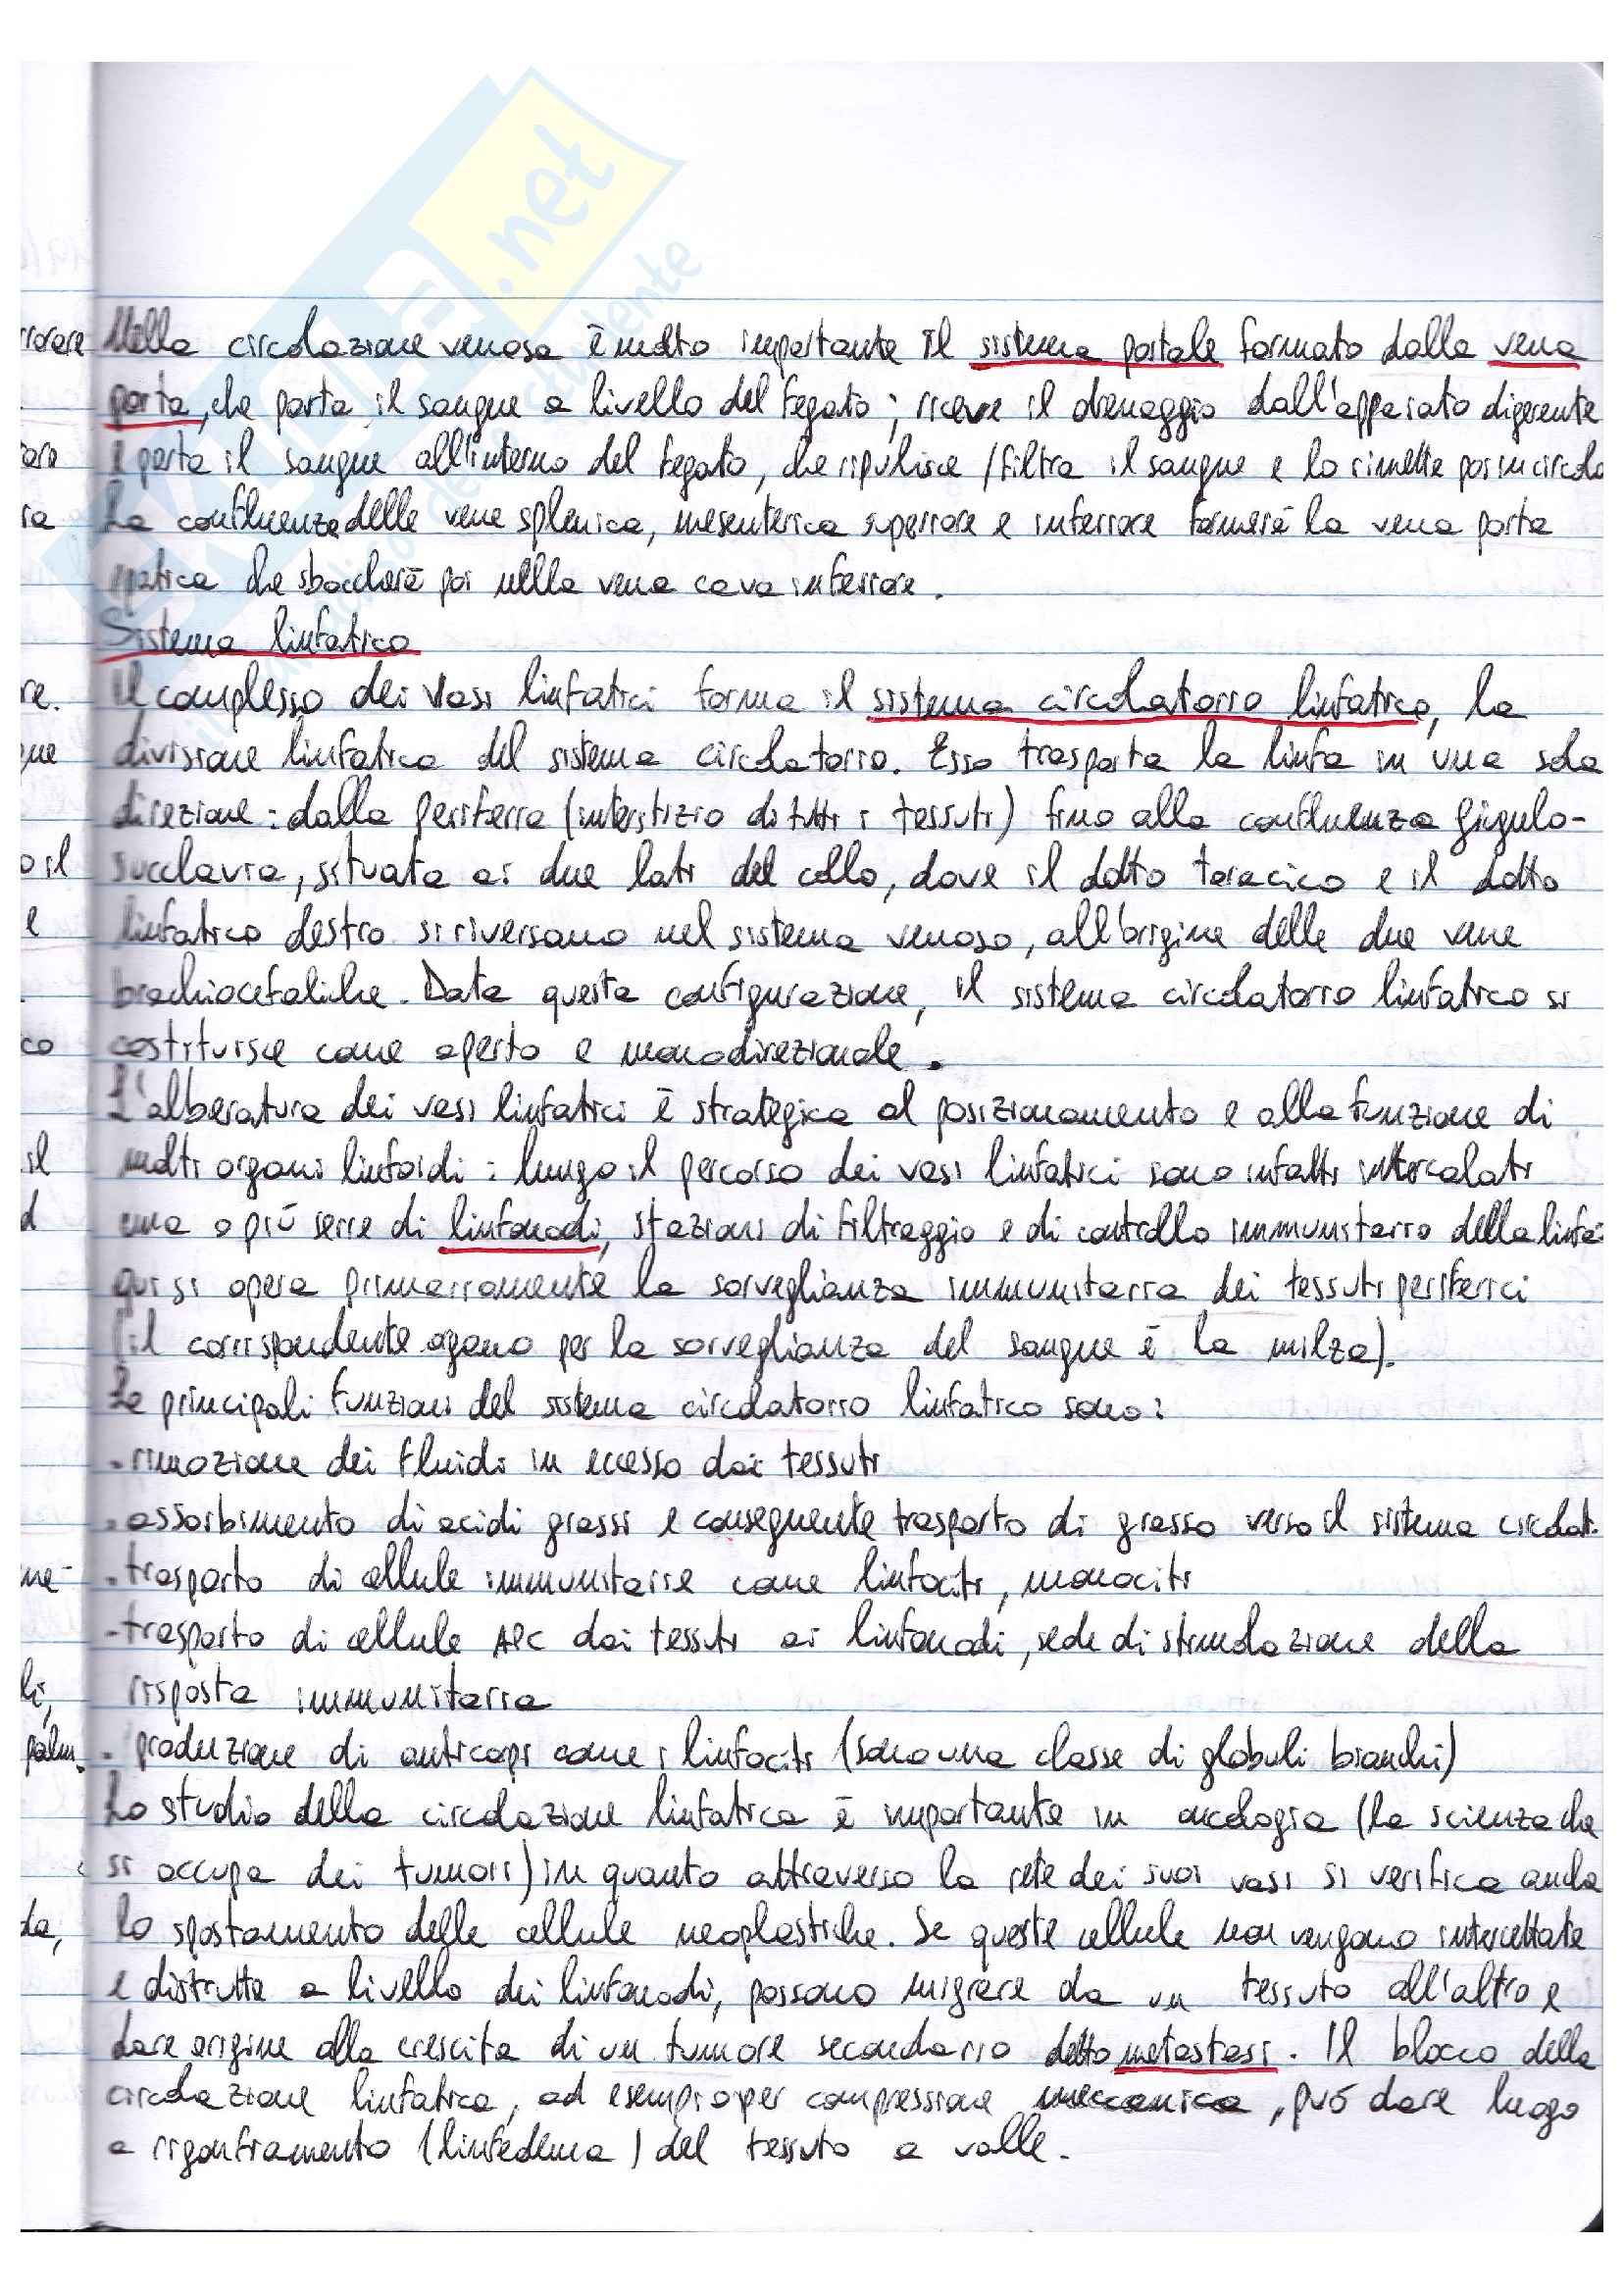 Nella circolazione venosa è molto importante il sistema portale formato dalla vena
porta, che porta il sangue a livello del fegato; riceve il drenaggio dall'apparato digerente
e porta il sangue all'interno del fegato, che ripulisce / filtra il sangue e lo rimette poi in circolo
La confluenza delle vene splenica, mesenterica superiore e inferiore formerà la vena porta
epatica che sboccherà poi nella vena cava inferiore.
Sistema linfatico
Il complesso dei vasi linfatici forma il sistema circolatorio linfatico, la
divisione linfatica del sistema circolatorio. Esso trasporta la linfa in una sola
direzione: dalla periferia (interstizio di tutti i tessuti) fino alla confluenza giugulo-
succlavia, situata ai due lati del collo, dove il dotto toracico e il dotto
linfatico destro si riversano nel sistema venoso, all'origine delle due vene
brachiocefaliche. Data questa configurazione, il sistema circolatorio linfatico si
costituisce come aperto e monodirezionale.
L'alberatura dei vasi linfatici è strategica al posizionamento e alla funzione di
molti organi linfoidi: lungo il percorso dei vasi linfatici sono infatti intercalati
una o più serie di linfonodi, stazioni di filtraggio e di controllo immunitario della linfa:
qui si opera primariamente la sorveglianza immunitaria dei tessuti periferici
(il corrispondente organo per la sorveglianza del sangue è la milza).
Le principali funzioni del sistema circolatorio linfatico sono:
- rimozione dei fluidi in eccesso dai tessuti
- assorbimento di acidi grassi e conseguente trasporto di grasso verso il sistema circolat.
- trasporto di cellule immunitarie come linfociti, monociti
- trasporto di cellule APC dai tessuti ai linfonodi, sede di stimolazione della
risposta immunitaria
- produzione di anticorpi come i linfociti (sono una classe di globuli bianchi)
Lo studio della circolazione linfatica è importante in oncologia (la scienza che
si occupa dei tumori) in quanto attraverso la rete dei suoi vasi si verifica anche
lo spostamento delle cellule neoplastiche. Se queste cellule non vengono intercettate
e distrutte a livello dei linfonodi, possono migrare da un tessuto all'altro e
dare origine alla crescita di un tumore secondario detto metastasi. Il blocco della
circolazione linfatica, ad esempio per compressione meccanica, può dare luogo
a rigonfiamento (linfedema) del tessuto a valle.